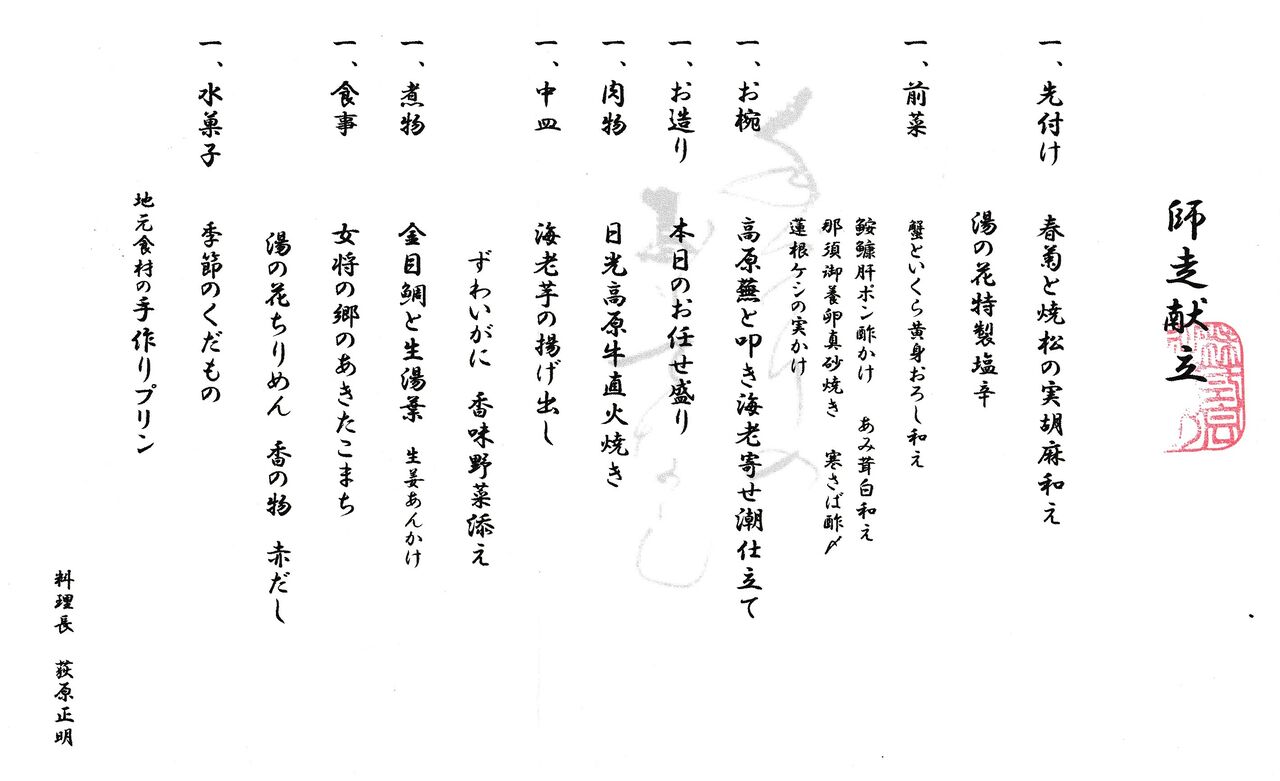 師走献立
一、先付け　春菊と焼松の実胡麻和え
湯の花特製塩辛
一、前菜　蟹といくら黄身おろし和え
鮟鱇肝ポン酢かけ　あみ茸白和え
那須御養卵真砂焼き　寒さば酢〆
蓮根ケシの実かけ
一、お椀　高原蕪と叩き海老寄せ潮仕立て
一、お造り　本日のお任せ盛り
一、肉物　日光高原牛直火焼き
一、中皿　海老芋の揚げ出し
ずわいがに　香味野菜添え
一、煮物　金目鯛と生湯葉　生姜あんかけ
一、食事　女将の郷のあきたこまち
湯の花ちりめん　香の物　赤だし
一、水菓子　季節のくだもの
地元食村の手作りプリン
料理長　荻原正明